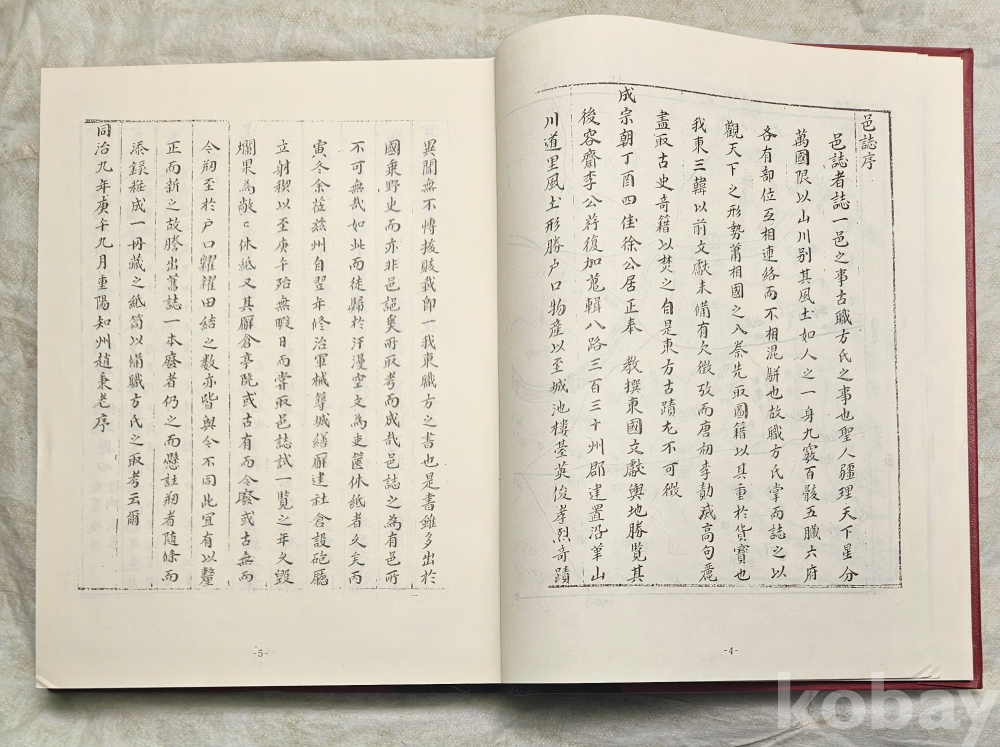 邑誌序
邑誌者誌一邑之事古職方氏之事也聖人疆理天下星分
萬國限以山川別其風土如人之一身九竅百骸五臟六府
各有部位互相連絡而不相混騈也故職方氏掌而誌之以
觀天下之形勢蕭相國之入秦先取圖籍以其重於貨寶也
我東三韓以前文獻未備有欠徵攷而唐初李勣殘高句麗
盡取古史奇籍以焚之自是東方古蹟尤不可徵
成宗朝丁酉四佳徐公居正奉 教撰東國文獻輿地勝覧其
後容齋李公荇復加蒐輯八路三百三十州郡建置沿革山
川道里風土形勝户口物産以至城池樓臺英俊孝烈奇蹟
異聞無不慱採賅載卽一我東職方之書也是書雖多出於
國乗野史而亦非邑誌奚所取考而成哉邑誌之為有邑所
不可無哉如此而徒歸於汗漫空文為吏篋休紙者久矣丙
寅冬余莅兹州自翌年修治軍械葺城繕廨建社倉設砲廳
立射稧以至庚午殆無暇日而嘗取邑誌試一覧之年久毀
爛果為敝〻休紙又其廨倉亭院或古有而今廢或古無而
今刱至於户口糶糴田結之數亦皆與今不同此宜有以釐
正而新之故謄出舊誌一本廢者仍之而懸註刱者隨條而
添錄粧成一冊藏之紙筒以備職方氏之取考云爾
同治九年庚午九月重陽知州趙秉老序
-4-
-5-
kobay